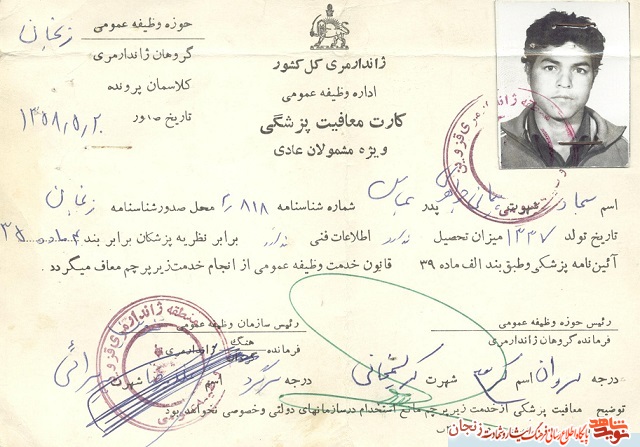 حوزه وظیفه عمومی زنجان
گروهان ژاندارمری
کلاسمان پرونده
تاریخ صدور ۱۳۵۸,۵,۲۰
ژاندارمری کل کشور
اداره وظیفه عمومی
کارت معافیت پزشگی
ویژه مشمولان عادی
اسم سجاد شهرت پدر عباس شماره شناسنامه ۸۱۸ محل صدور شناسنامه زنجان
تاریخ تولد ۱۳۳۷ میزان تحصیل ندارد اطلاعات فنی ندارد برابر نظریه پزشکان برابر بند ماده
آئین نامه پزشکی وطبق بند الف ماده ۳۹ قانون خدمت وظیفه عمومی از انجام خدمت زیر پرچم معاف میگردد .
رئیس حوزه وظیفه عمومی
فرمانده گروهان ژاندارمری
رئیس سازمان وظیفه عمومی
فرمانده هنگ ژاندارمری
درجه سروان اسم شهرت
درجه سرگرد اسم شهرت
توضیح معافیت پزشکی از خدمت زیر پرچم مانع استخدام در سازمانهای دولتی وخصوصی نخواهد بود
منطقه ژاندارمری قزوین
ژاندارمری قزوین
نوید شاهد
پایگاه اطلاع رسانی فرهنگ ایثار و شهادت زنجان